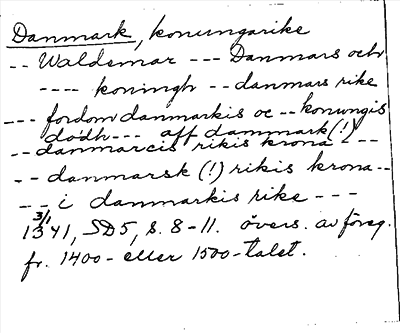 Danmark, konungarike
-- Waldemar --- Danmars och
---- koningh -- danmars rike
--- fordom danmarkis oc -- konungis
dödh --- aff dammark (!)
-- danmarcis rikis krona ---
-- danmarsk (!) rikis krona --
--- i danmarkis rike ---
3/1
1341, SD5, s. 8-11. övers. av föreg.
fr. 1400- eller 1500-talet.